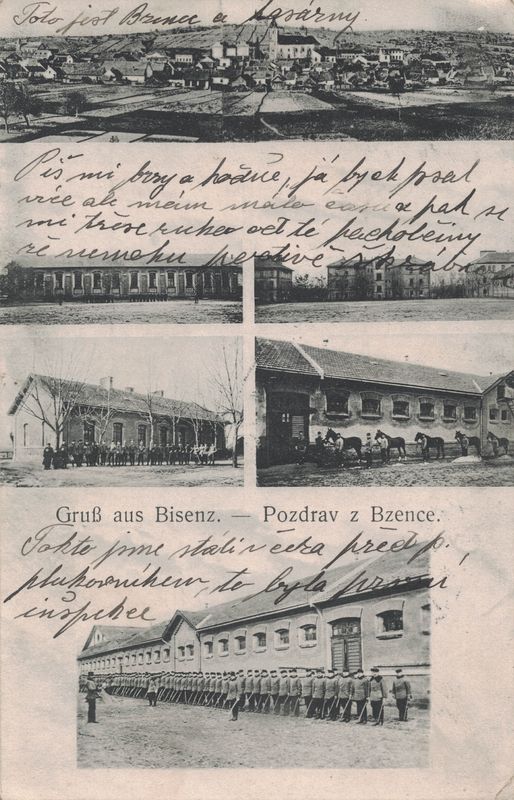 Toto jest Bzenec a kasárny
Piš mi brzy a hodně, já bych psal
více ale mám málo času a pak se
mi třese ruka od té pacholčiny
že nemohu poctivě
Gruß aus Bisenz. — Pozdrav z Bzence.
Takto jsme stáli včera před p.
plukovníkem, to byla první
inšpekce